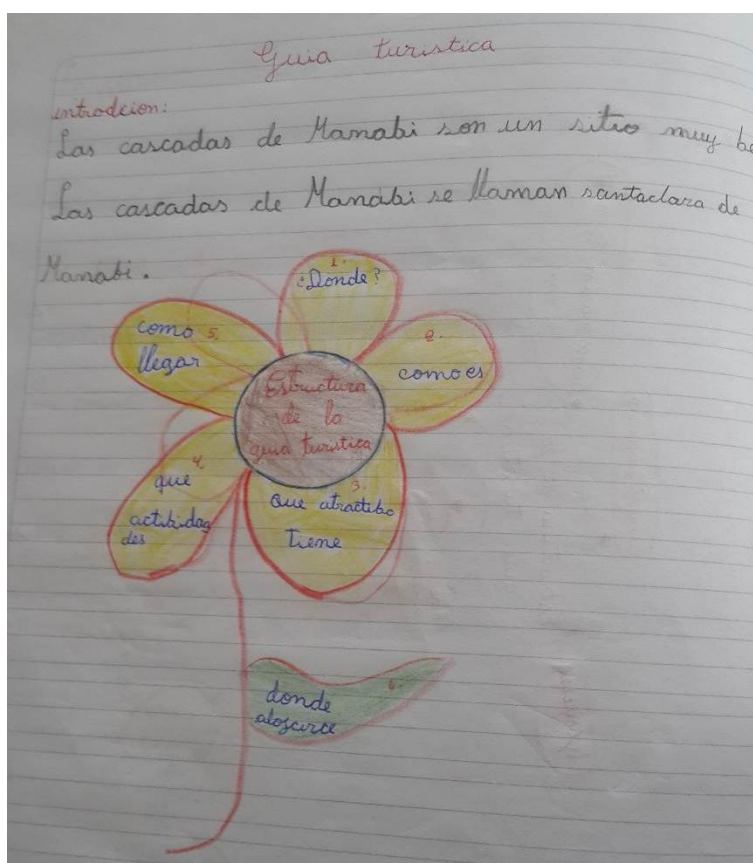 Guia turistica
introdcion:
Las cascadas de Manabi son un sitio muy be
Las cascadas de Manabi se llaman santaclara de
Manabi.
1.
¿Donde?
2.
como es
Estructura
de la
guia turistica
3.
que atractibo
tiene
4.
que
actibidad
des
como 5.
llegar
6.
donde